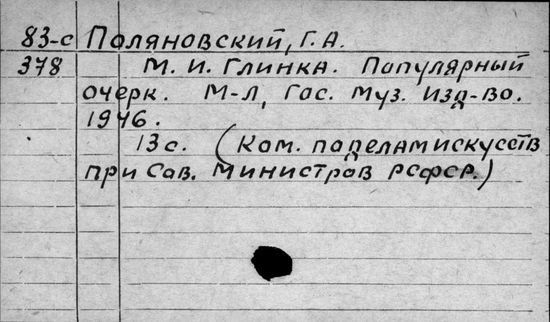 83-с Поляновский, Г. А.
378 М. И. Глинка. Популярный
очерк. М-Л, Гос. Муз. Изд-во.
1946.
13 с. (Ком. по делам искусств
при Сов. Министров РСФСР.)